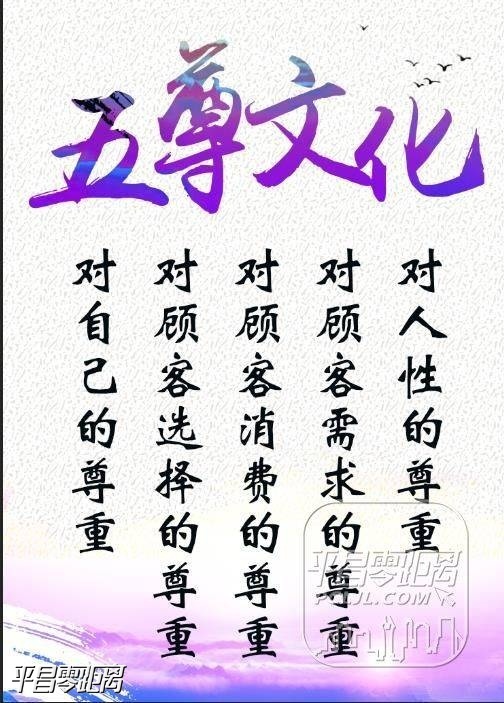 五尊文化
对人性的尊重
对顾客需求的尊重
对顾客消费的尊重
对顾客选择的尊重
对自己的尊重
平昌零距离
PCLJL.COM
平昌零距离